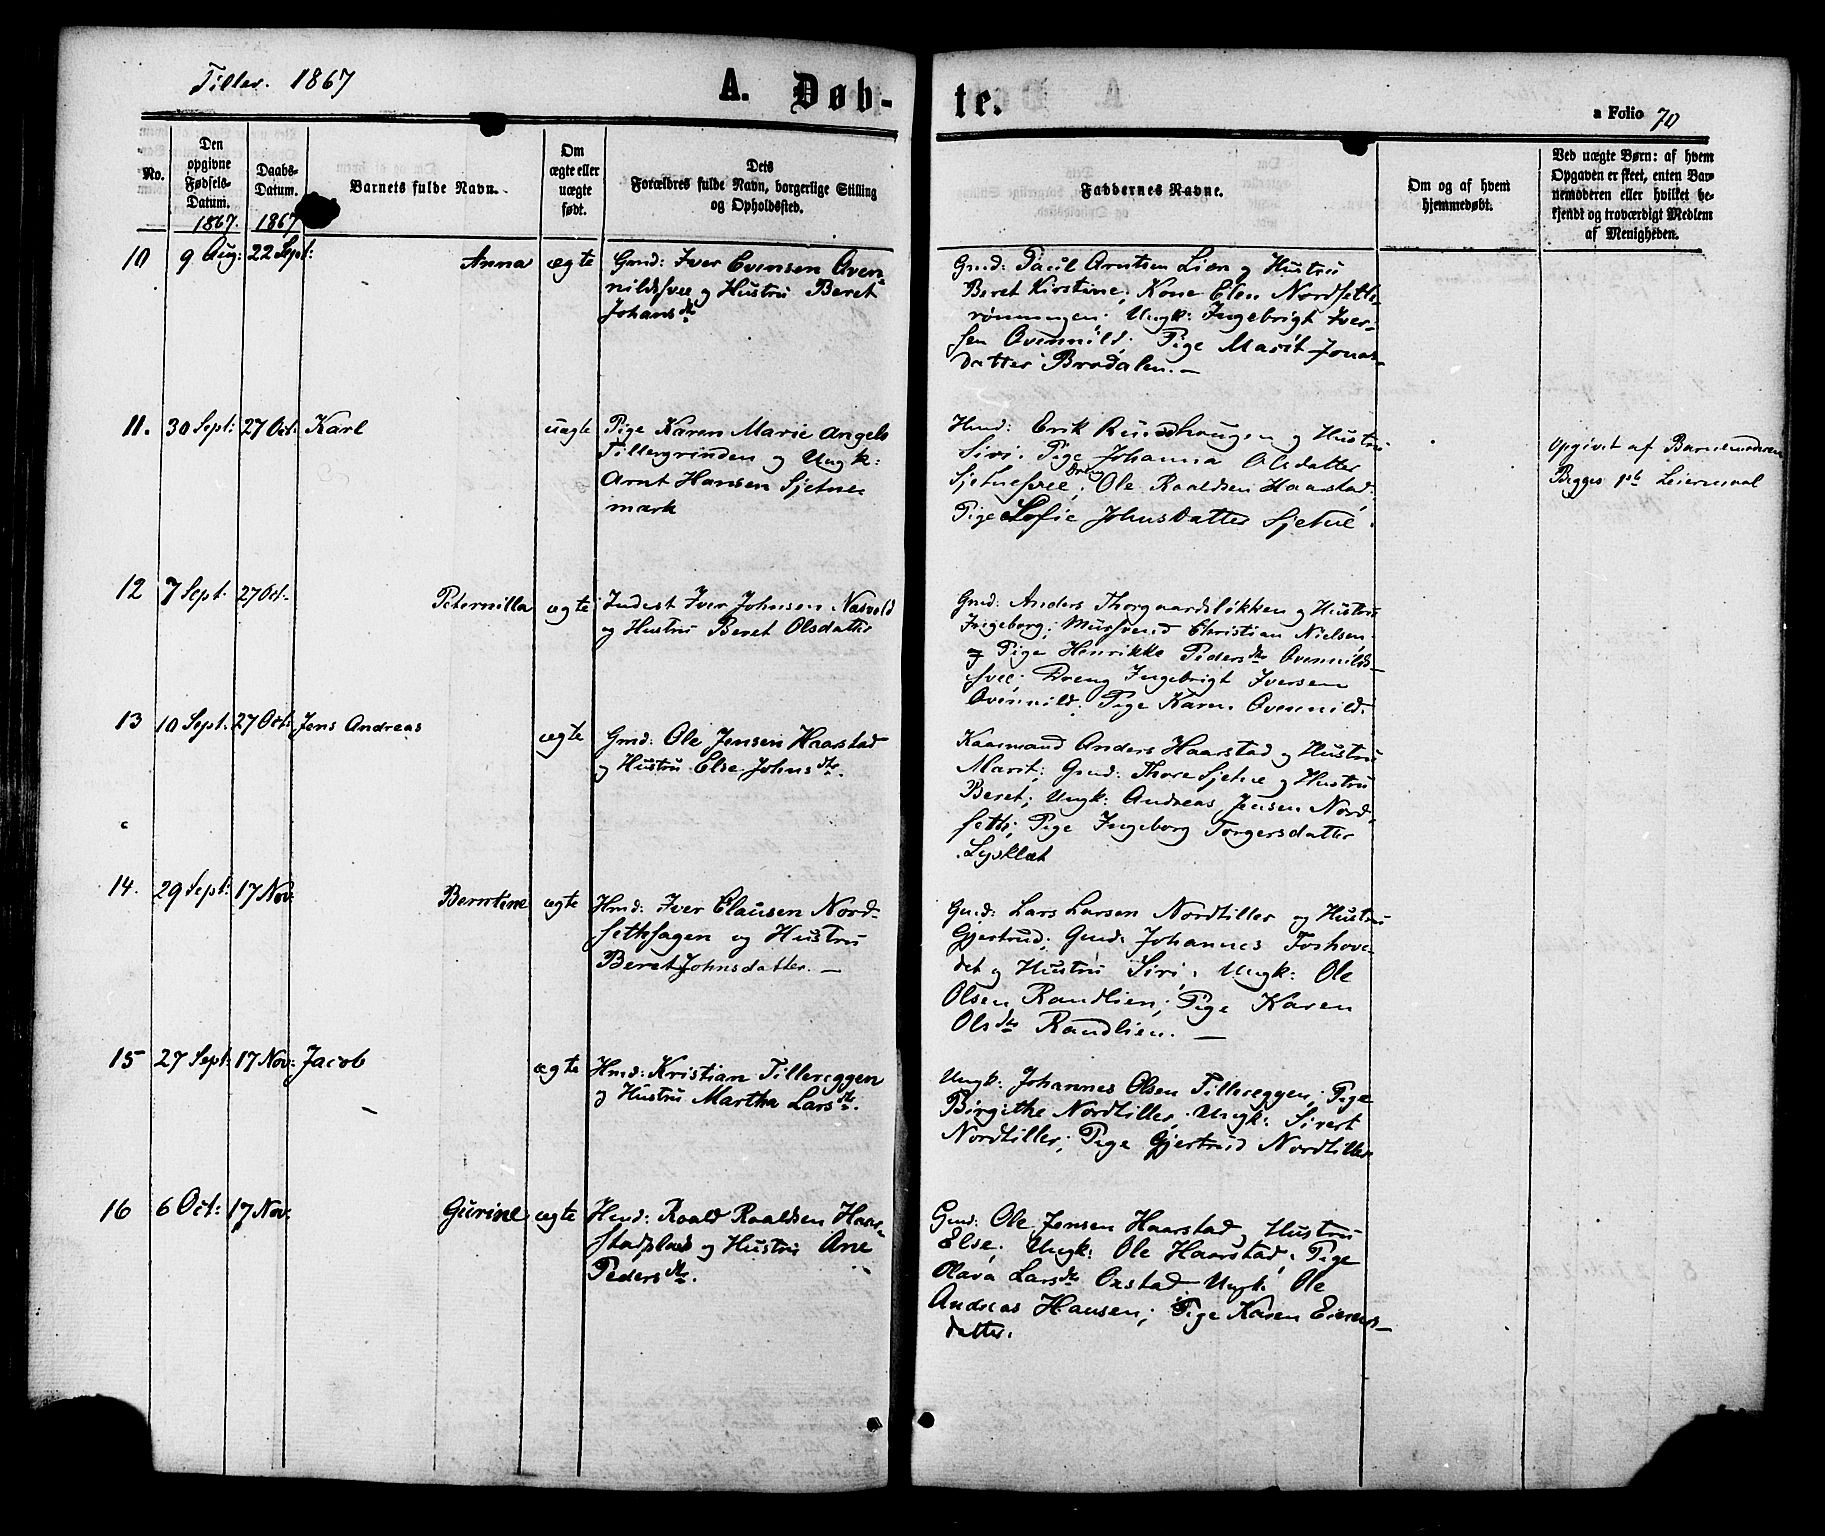 Tiller. 1867
A. Døb-
te.
a Folio 70
No.
Den
opgivne
Fødsels-
Datum.
1867.
Daabs-
Datum.
1867
Barnets fulde Navn.
Om
ægte eller
uægte
født.
Dets
Forældres fulde Navn, borgerlige Stilling
og Opholdssted.
Faddernes Navne.
Om og af hvem
hjemmedøbt.
Ved uægte Børn: af hvem
Opgaven er skeet, enten Bar-
nemoderen eller hvilket be-
kjendt og troværdigt Medlem
af Menigheden.
10 9 Aug: 22 Sept: Anna ægte
Gmd: Iver Evensen Øven-
nildsvee og Hustru Beret
Johansdtr
Gmd: Paul Arntsen Lien og Hustru
Beret Kirstine; Kone Elen Nordseth-
rønningen. Ungk: Ingebrigt Iver-
sen Øvennild; Pige Marit Jonas-
datter Brødalen.
11. 30 Sept: 27 Oct: Karl uægte
Pige Karen Marie Angels
Tillergrinden og Ungk:
Arnt Hansen Sjetne-
mark
Hmd: Erik Rundhaugen og Hustru
Siri; Pige Johanna Olsdatter
Sjetnesvee; Dreng Ole Roaldsen Haarstad
Pige Sofie Johnsdatter Sjetne.
Opgivet af Barnemoderen
Begges 1ste Leiermaal
12 7 Sept: 27 Oct. Peternilla ægte
Inderst Iver Johnsen Nasvold
og Hustru Beret Olsdatter
Gmd: Anders Thorgaardsløkken og Hustru
Ingeborg; Mursvend Christian Nielsen
og Pige Henrikke Pedersdtr Øvennilds-
svee. Dreng Ingebrigt Iversen
Øvennild; Pige Karen Øvennild.
13 10 Sept: 27 Oct: Jens Andreas ægte
Gmd: Ole Jensen Haarstad
og Hustru Else Johnsdtr.
Kaarmand Anders Haarstad og Hustru
Marit; Gmd: Thore Sjetne og Hustru
Beret; Ungk: Andreas Jensen Nord-
seth; Pige Ingeborg Torgersdatter
Lysklæt
14. 29 Sept: 17 Nov: Berntine ægte
Hmd: Iver Clausen Nord-
sethsagen og Hustru
Beret Johnsdatter. —
Gmd: Lars Larsen Nordtiller og Hustru
Gjertrud; Gmd: Johannes Foshove-
det og Hustru Siri; Ungk: Ole
Olsen Randlien; Pige Karen
Olsdtr Randlien. —
15 27 Sept: 17 Nov: Jacob ægte
Hmd: Kristian Tillereggen
og Hustru Martha Larsdtr.
Ungk: Johannes Olsen Tillereggen; Pige
Birgithe Nordtiller. Ungk: Sivert
Nordtiller; Pige Gjertrud Nordtiller
16 6 Oct: 17 Nov: Gurine ægte
Hmd: Roald Roaldsen Haar-
stadplads og Hustru Ane
Pedersdtr.
Gmd: Ole Jensen Haarstad og Hustru
Else; Ungk: Ole Haarstad; Pige
Olava Larsdtr Oxstad Ungk: Ole
Andreas Hansen; Pige Karen Einars-
datter.